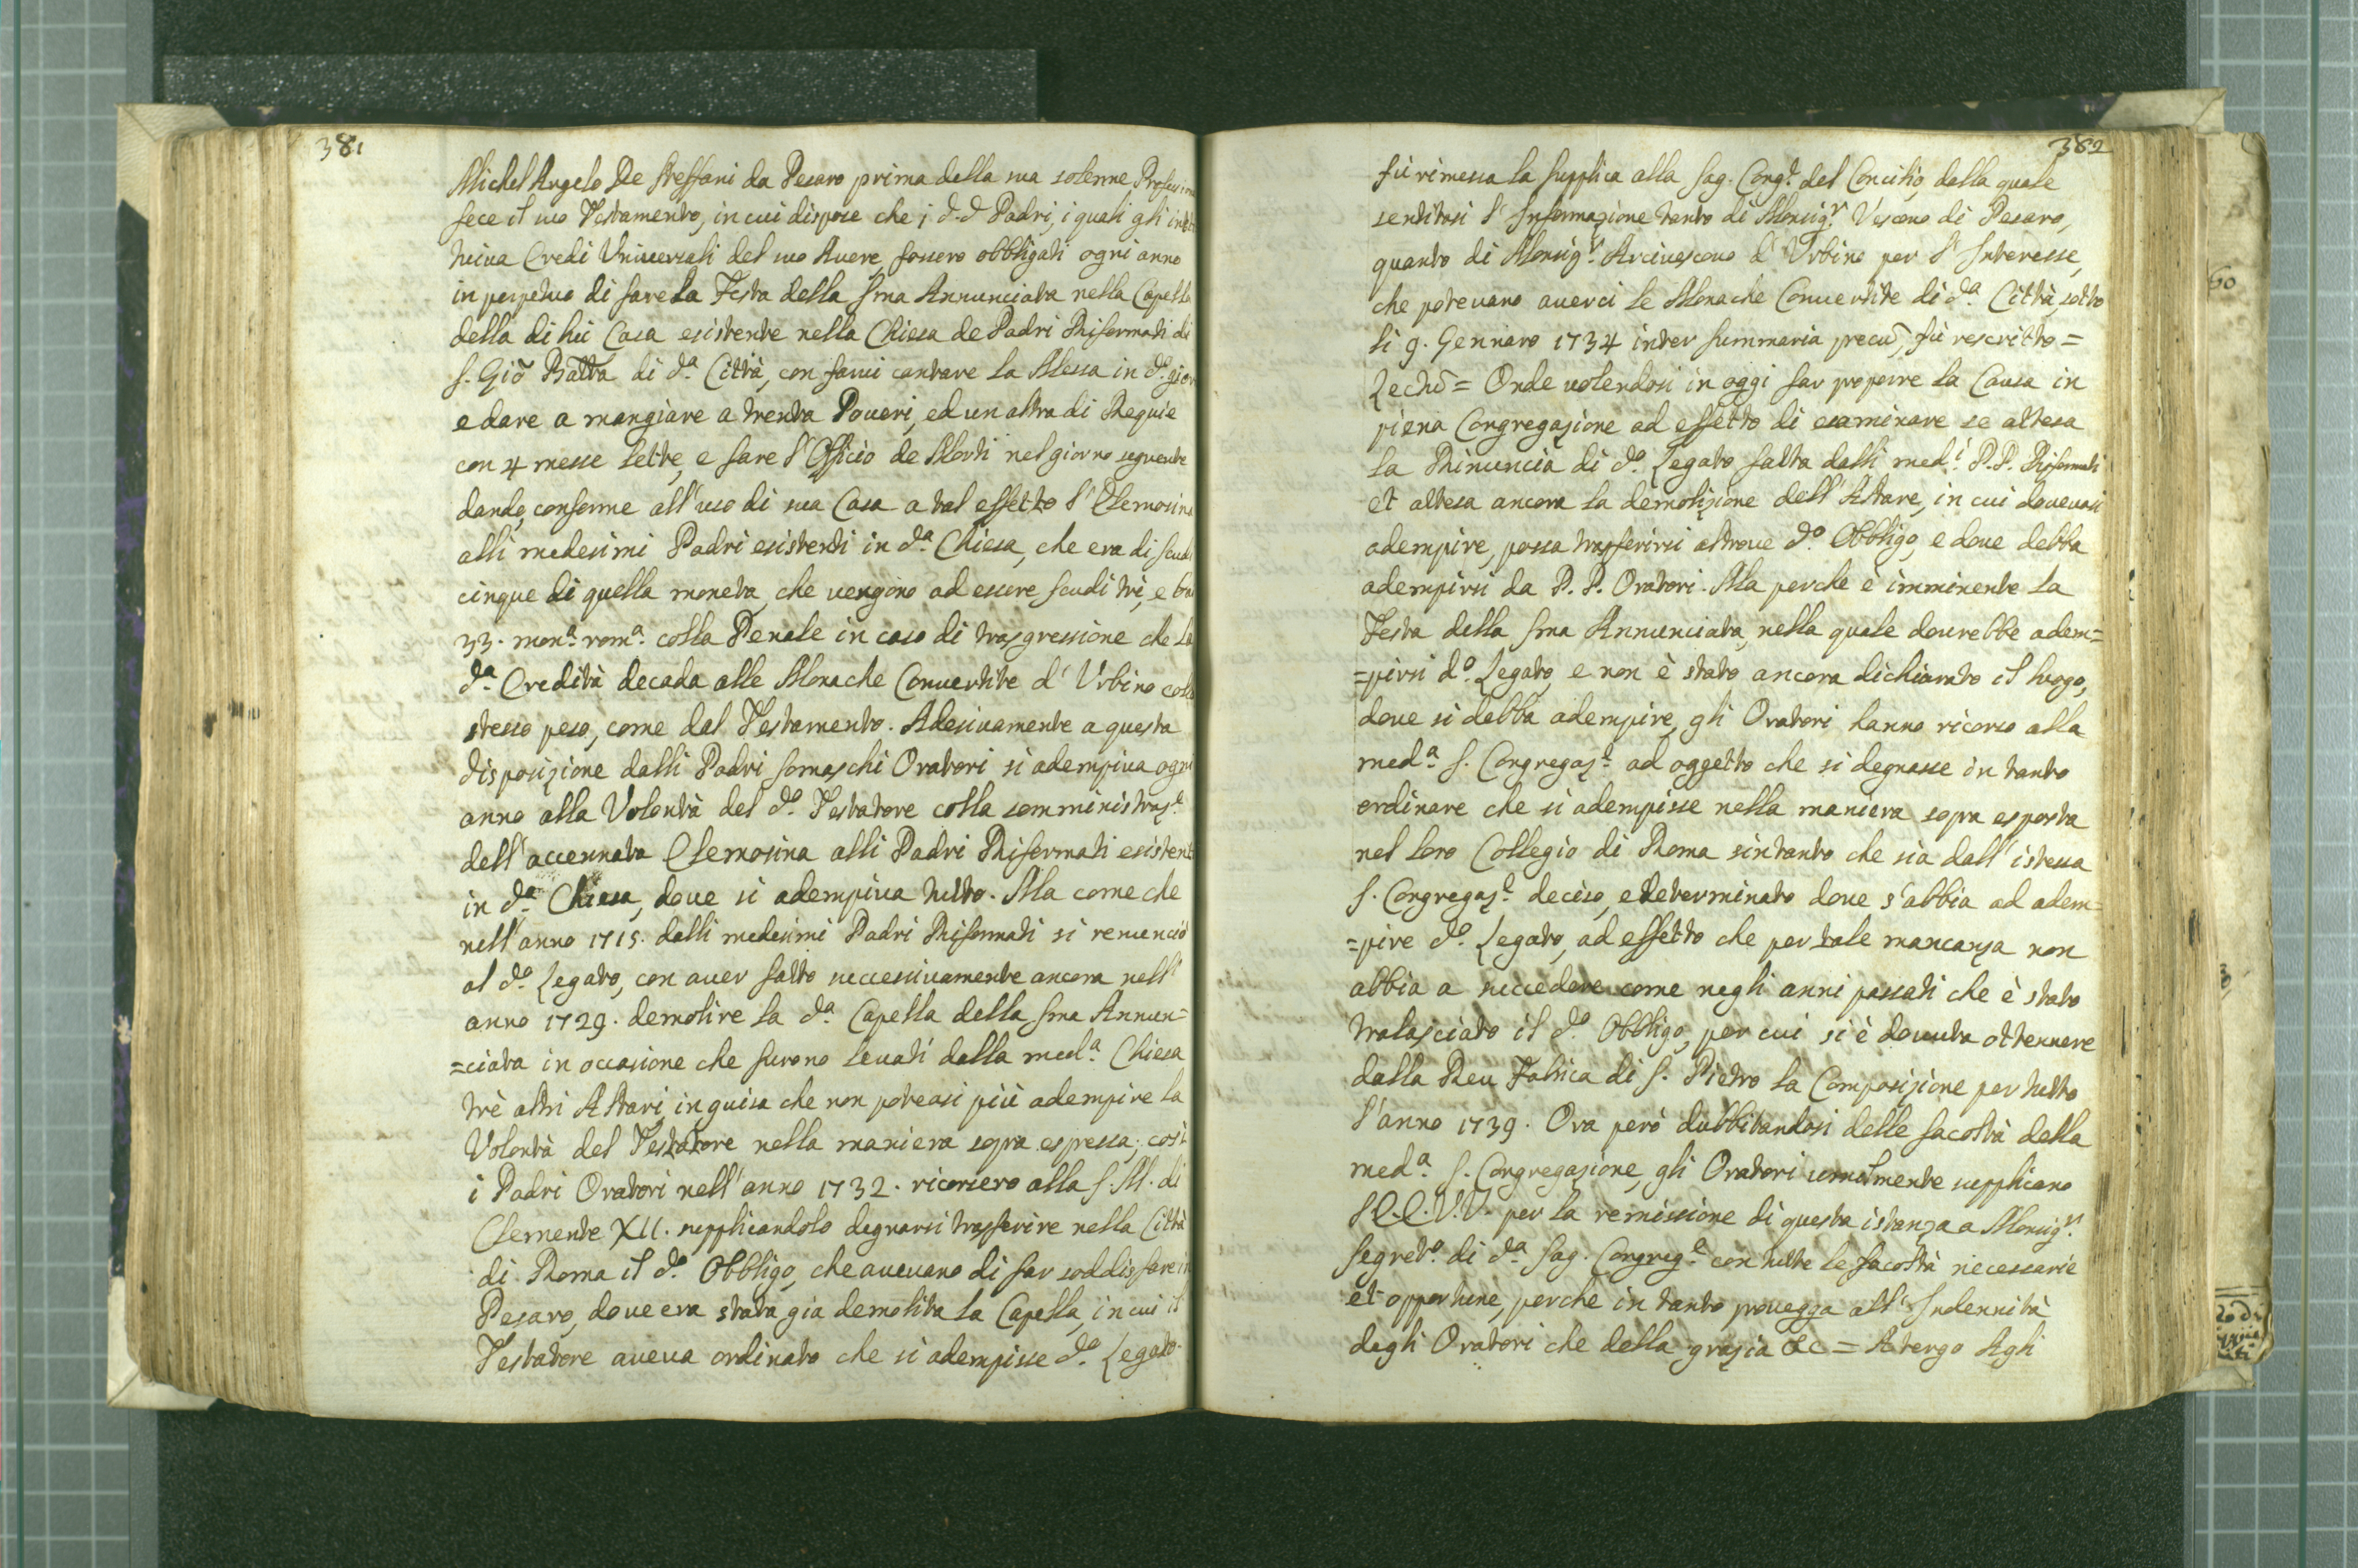 381
Michel Angelo De Steffani da Pesaro prima della sua solenne Profession
fece il suo Testamento, in cui dispose che i d.d Padri, i quali gli insti
tuiva Eredi Universali del suo Avere, fossero obbligati ogni anno
in perpetuo di fare la Festa della Sma Annunciata nella Capella
della di lui Casa esistente nella Chiesa de Padri Riformati di
S. Gio Batta di da. Città, con farui cantare la Messa in do. gior
e dare a mangiare a trenta Poueri, ed un altra di Requie
con 4 messe lette, e fare l'Officio de Morti nel giorno seguente
dando, conforme all'uso di sua Casa a tal effetto l'Elemosina
alli medesimi Padri esistenti in da. Chiesa, che era di scudi
cinque di quella moneta, che vengono ad essere scudi trè, e ba
33. mona. roma. colla Penale in caso di trasgressione che la
da. Eredità decada alle Monache Conuertite d'Urbino collo
stesso peso, come dal Testamento. Adesiuamente a questa
disposizione dalli Padri Somaschi Oratori si adempiua ogni
anno alla Volontà del do. Testatore colla somministraze.
dell'accennata Elemosina alli Padri Riformati esistent
in da. Chiesa, doue si adempiua tutto. Ma come che
nell'anno 1715. dalli medesimi Padri Riformati si renunciò
al do. Legato, con auer fatto successiuamente ancora nell'
anno 1729. demolire la da. Capella della Sma Annun=
=ciata in occasione che furono leuati dalla meda. Chiesa
trè altri Altari, in guisa che non poteasi più adempire la
Volontà del Testatore nella maniera sopra espressa; così
i Padri Oratori nell'anno 1732. ricorsero alla S.M. di
Clemente XII. supplicandolo degnarsi trasferire nella Città
di Roma il do. Obbligo, che aueuano di far soddisfare in
Pesaro, doue era stata gia demolita la Capella, in cui il
Testatore aueua ordinato che si adempisse do. Legato.
382
fù rimessa la supplica alla Sag. Conge. del Concilio, dalla quale
sentitasi l'Informazione tanto di Monsigr. Vescouo di Pesaro,
quanto di Monsigr. Arciuescouo d'Urbino per l'Interesse,
che poteuano auerci le Monache Conuertite di da. Città, sotto
li 9. Gennaro 1734 inter summaria precū, fù rescritto =
Lectū = Onde uolendosi in oggi far proporre la Causa in
piena Congregazione ad effetto di esaminare se attesa
la Rinuncia di do. Legato fatta dalli medi. P.P. Riformati
et attesa ancora la demolizione dell'Altare, in cui doueuasi
adempire, possa trasferirsi altroue do. Obbligo, e doue debba
adempirsi da P.P. Oratori. Ma perche è imminente la
Festa della Sma Annunciata, nella quale dourebbe adem=
=pirsi do. Legato, e non è stato ancora dichiarato il luogo,
doue si debba adempire, gli Oratori hanno ricorso alla
meda. S. Congregaze. ad oggetto che si degnasse in tanto
ordinare che si adempisse nella maniera sopra esposta
nel loro Collegio di Roma sintanto che sia dall'istessa
S. Congregaze. deciso, e determinato doue s'abbia ad adem=
=pire do. Legato, ad effetto che per tale mancanza non
abbia a succedere come negli anni passati che è stato
tralasciato il do. Obbligo, per cui si è douuta ottenere
dalla Reu Fabrica di S. Pietro la Composizione per tutto
l'anno 1739. Ora però dubbitandosi delle facoltà della
meda. S. Congregazione, gli Oratori umilmente supplicano
l'E.E.V.V. per la remissione di questa istanza a Monsigr.
Segreto. di da. Sag. Congrege. con tutte le facoltà necessarie
et opportune, perche in tanto prouegga all'Indennità
degli Oratori che della grazia &c = A tergo Agli
60